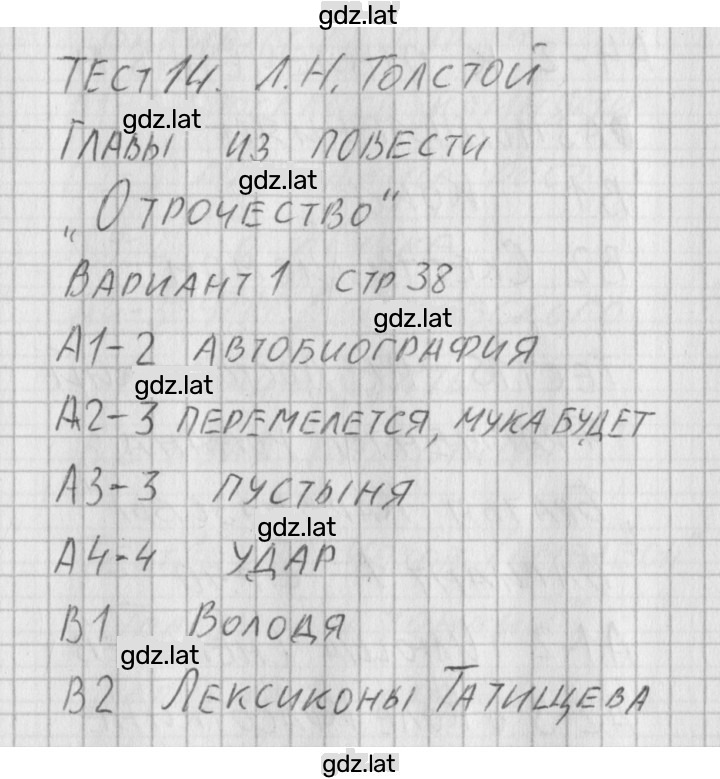 gdz.lat
ТЕСТ 14. Л.Н. ТОЛСТОЙ
gdz.lat
ГЛАВЫ ИЗ ПОВЕСТИ
gdz.lat
„ОТРОЧЕСТВО“
ВАРИАНТ 1 СТР 38
gdz.lat
А1-2 АВТОБИОГРАФИЯ
gdz.lat
А2-3 ПЕРЕМЕЛЕТСЯ, МУКА БУДЕТ
А3-3 ПУСТЫНЯ
gdz.lat
А4-4 УДАР
В1 ВОЛОДЯ
gdz.lat
В2 ЛЕКСИКОНЫ ТАТИЩЕВА
gdz.lat